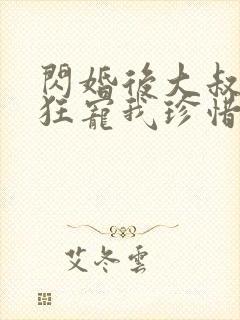 閃婚後大叔
狂寵我珍惜
艾冬雲